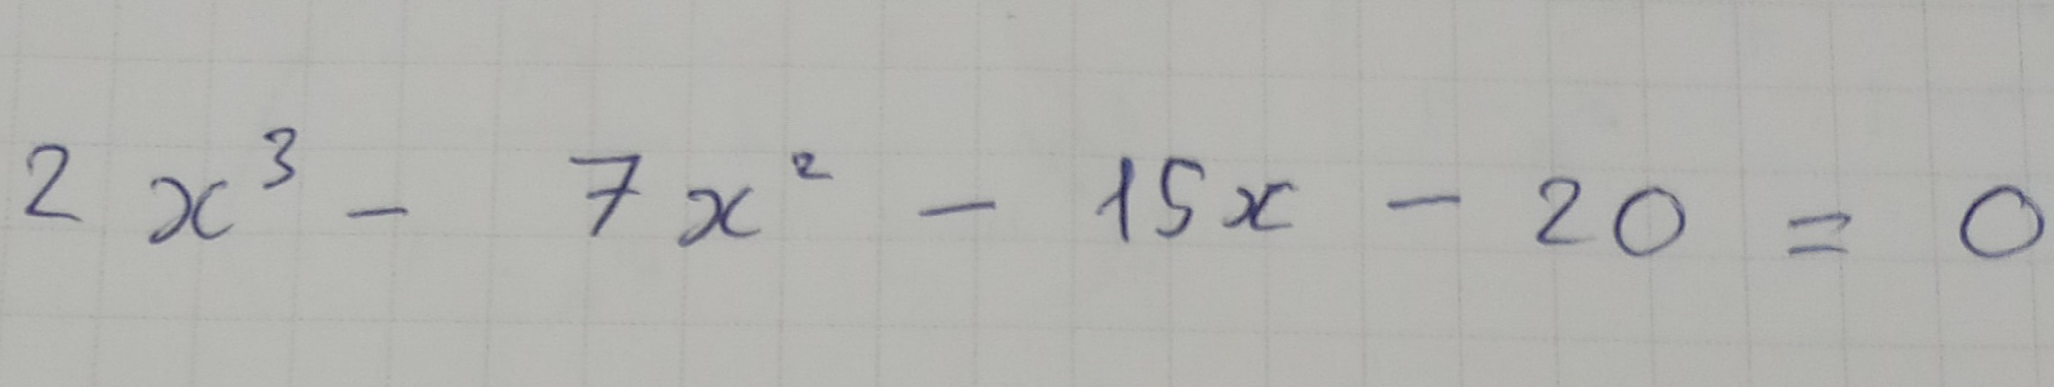 2x³ - 7x² - 15x - 20 = 0